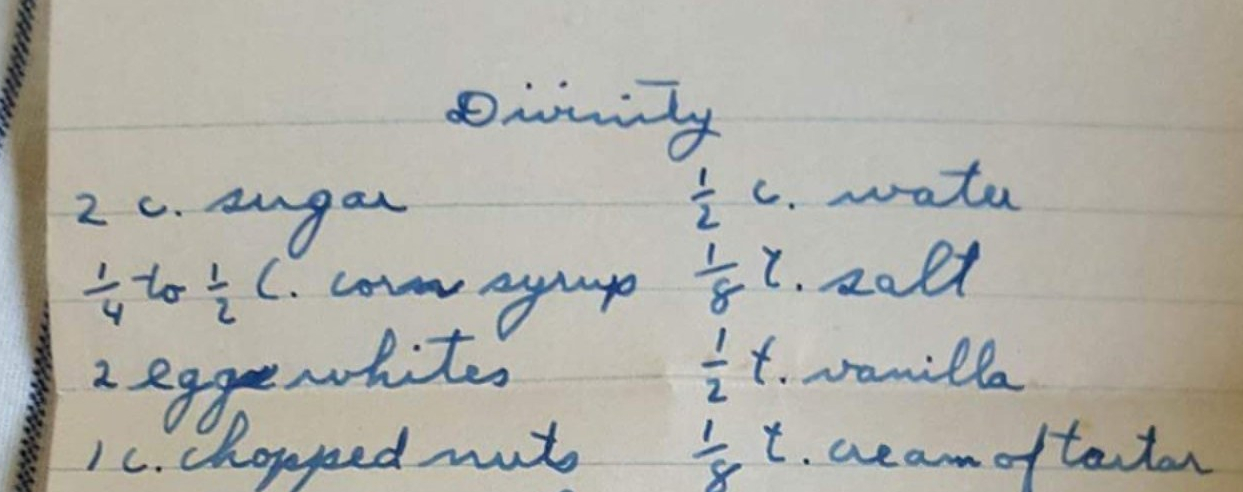 Divinity
2 c. sugar ½ c. water
¼ to ½ C. corn syrup ⅛ t. salt
2 egg whites ½ t. vanilla
1 c. chopped nuts ⅛ t. cream of tartar